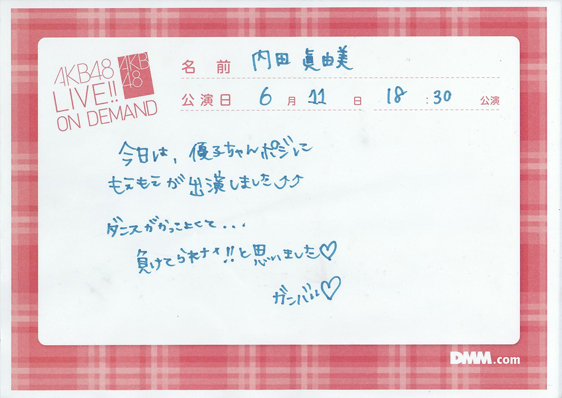 AKB48
LIVE!!
ON DEMAND
AKB
48
名前 内田眞由美
公演日 6月11日 18:30公演
今日は、優子ちゃんポジに
もえもえが出演しました⤴⤴
ダンスがかっこよくて...
負けてられナイ!!と思いました♡
ガンバル♡
DMM.com